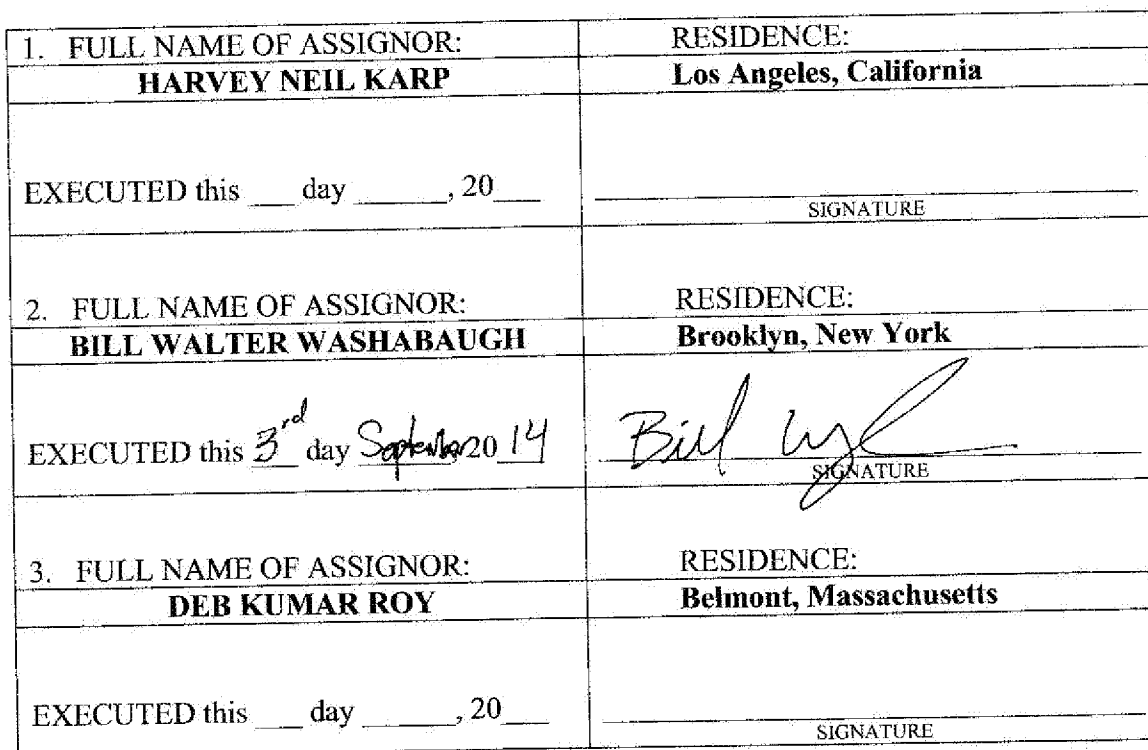 1. FULL NAME OF ASSIGNOR: RESIDENCE:
HARVEY NEIL KARP Los Angeles, California
EXECUTED this ___ day ______, 20___
SIGNATURE
2. FULL NAME OF ASSIGNOR: RESIDENCE:
BILL WALTER WASHABAUGH Brooklyn, New York
EXECUTED this 3rd day September 20 14 Bill
SIGNATURE
3. FULL NAME OF ASSIGNOR: RESIDENCE:
DEB KUMAR ROY Belmont, Massachusetts
EXECUTED this ___ day ______, 20___
SIGNATURE